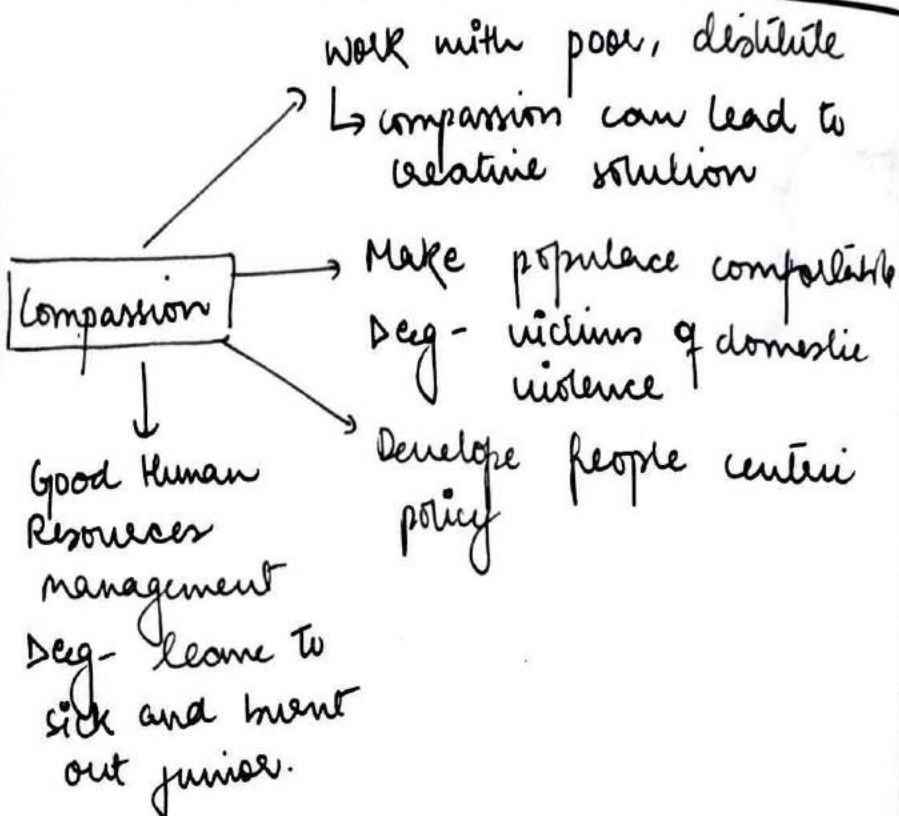 work with poor, destitute
↳ compassion can lead to
creative solution
Compassion
Make populace comfortable
eg - victims of domestic
violence
Develope people centric
policy
Good Human
Resources
management
eg - leave to
sick and burnt
out junior.